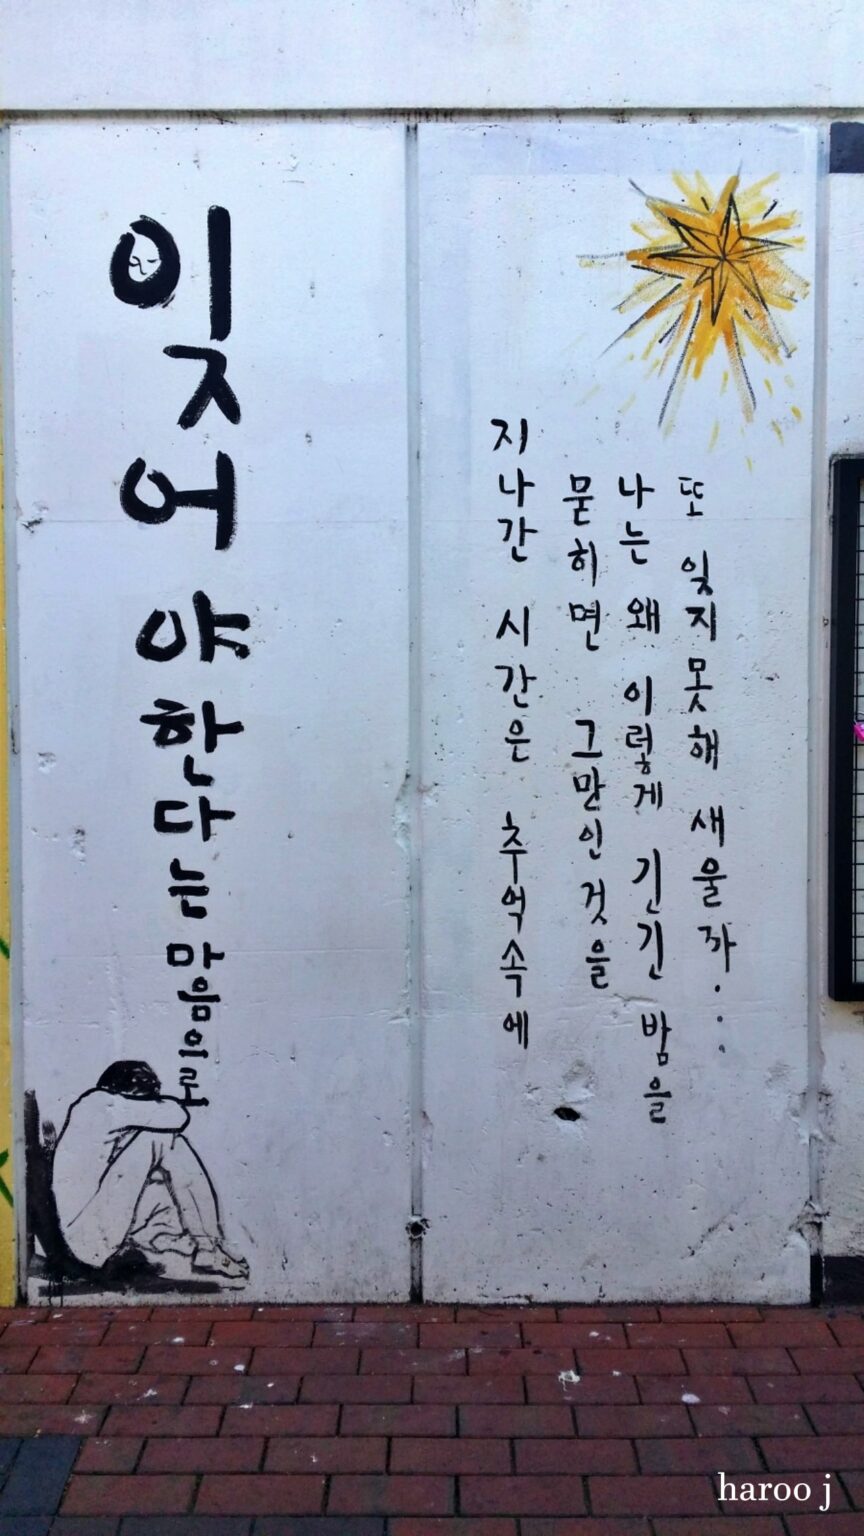 잊어야 한다는 마음으로
지나간 시간은 추억속에
묻히면 그만인것을
나는 왜 이렇게 긴긴 밤을
또 잊지못해 새울까...
haroo j